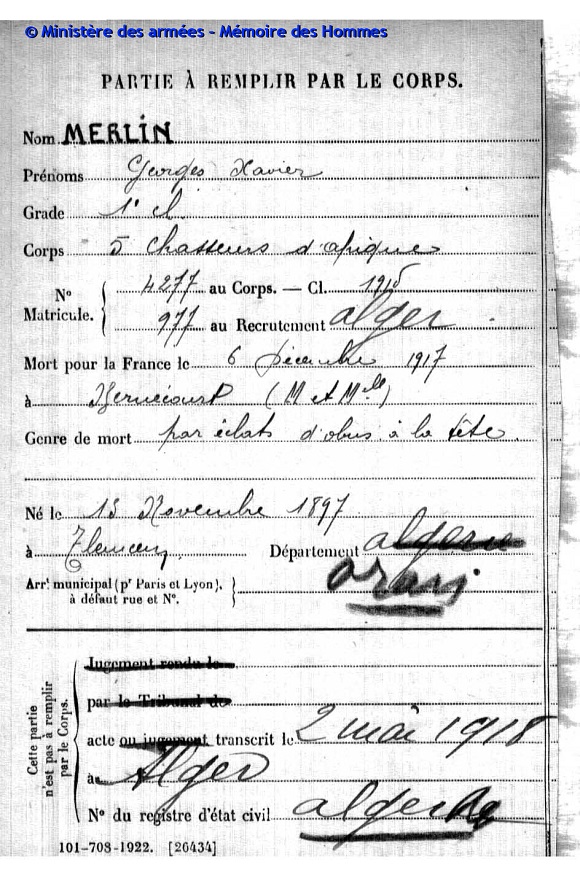 © Ministère des armées - Mémoire des Hommes
PARTIE À REMPLIR PAR LE CORPS.
Nom MERLIN
Prénoms Georges Xavier
Grade 1e cl.
Corps 5 Chasseurs d'afrique
N° Matricule. 4277 au Corps. — Cl. 1915
977 au Recrutement alger
Mort pour la France le 6 Décembre 1917
à Bernécourt (M et Mlle)
Genre de mort par éclats d'obus à la tête
Né le 13 Novembre 1897
à Tlemcen Département algerie
Arrt municipal (pr Paris et Lyon), à défaut rue et N°. oran
Cette partie n'est pas à remplir par le Corps.
Jugement rendu le
par le Tribunal de
acte ou jugement transcrit le 2 mai 1918
à Alger
N° du registre d'état civil alger
101-708-1922. [26434]